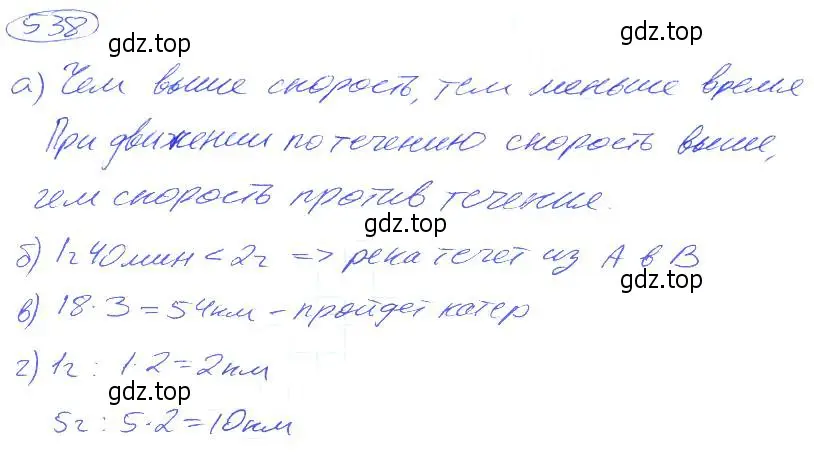 538
gdz.top
а) Чем выше скорость, тем меньше время
При движении по течению скорость выше,
чем скорость против течения.
gdz.top
б) 1ч 40 мин < 2ч => река течет из А в В
gdz.top
в) 18·3 = 54км - пройдет катер
г) 1ч: 1·2 = 2км
5ч: 5·2 = 10км
gdz.top